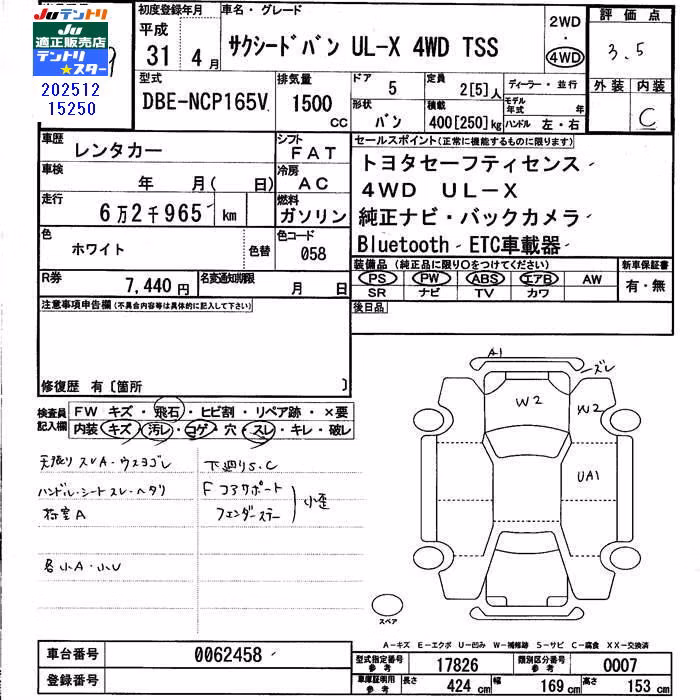 Juテントリ
Ju
適正販売店
テントリ★スター
202512
15250
初度登録年月
平成
31年 4月
車名・グレード
サクシードバン UL-X 4WD TSS
2WD
・
4WD
評価点
3.5
外装 内装
C
型式
DBE-NCP165V
排気量
1500 CC
ドア 5
定員 2[5]人
形状 バン
積載 400[250]kg
ディーラー・並行
モデル年式 年
ハンドル 左・右
車歴
レンタカー
シフト
FAT
車検
年 月( 日)
冷房
AC
走行
6万2千965 km
燃料
ガソリン
色
ホワイト
色替
色コード
058
R券
7,440円
名変通知期限
月 日
セールスポイント(正常に機能するものに限ります)
トヨタセーフティセンス
4WD UL-X
純正ナビ・バックカメラ
Bluetooth ETC車載器
装備品 (純正品に限り○をつけてください)
PS PW ABS エアB AW
SR ナビ TV カワ
新車保証書
有・無
後日品
注意事項申告欄(不具合内容等は具体的に記入して下さい)
修復歴 有〔箇所 〕
検査員記入欄
FW キズ・飛石・ヒビ割・リペア跡・×要
内装 キズ・汚レ・コゲ・穴・スレ・キレ・破レ
天張リ スレA・ウスヨゴレ
ハンドル・シートスレ・ヘタリ
荷室A
各小A・小U
下廻りS.C
F コアサポート
フェンダーステー
小歪
A1
ズレ
W2
W2
UA1
スペア
A-キズ E-エクボ U-凹み W-補修跡 S-サビ C-腐食 XX-交換済
車台番号 0062458
登録番号
型式指定番号 参考 17826
類別区分番号 参考 0007
車庫証明用 参考 長さ 424 cm 幅 169 cm 高さ 153 cm